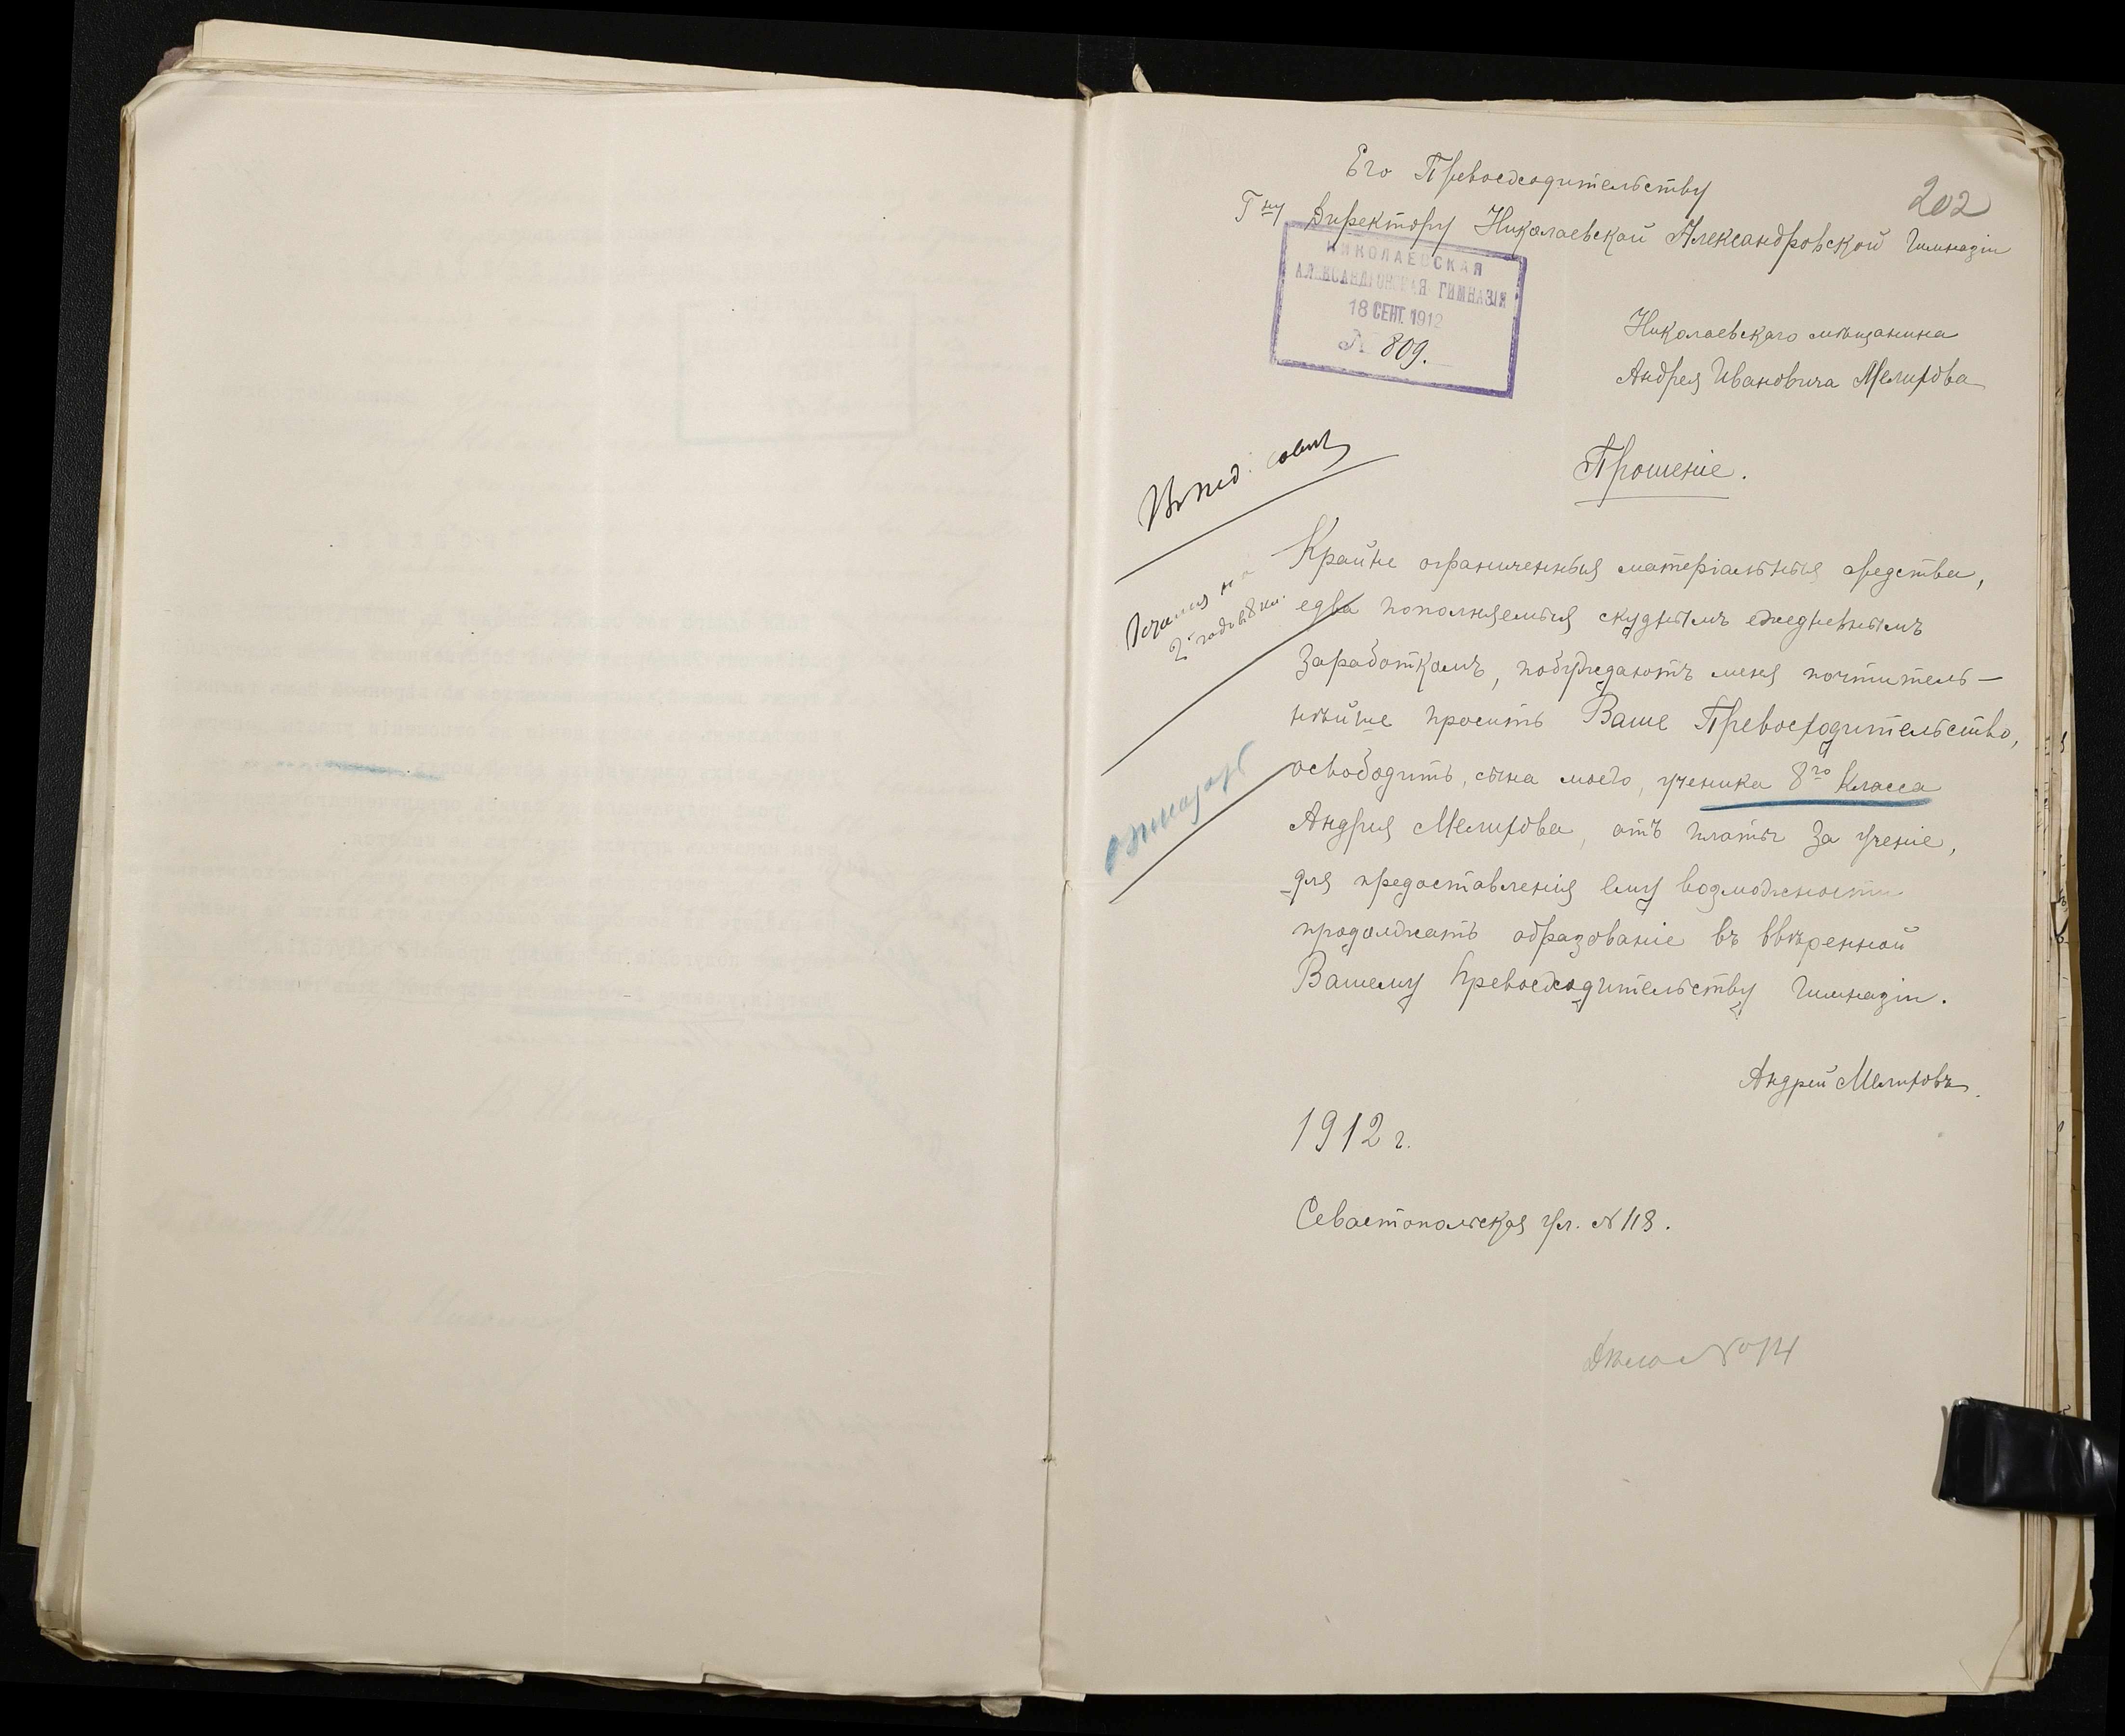 202
Его Превосходительству
Гну Директору Николаевской Александровской Гимназіи
НИКОЛАЕВСКАЯ
АЛЕКСАНДРОВСКАЯ ГИМНАЗІЯ
18 СЕНТ. 1912
№ 809.
Николаевскаго мѣщанина
Андрея Ивановича Мелихова
Прошеніе.
Въ пед. совѣтъ
Крайне ограниченныя матеріальныя средства,
едва пополняемыя скуднымъ ежедневнымъ
заработкомъ, побуждаютъ меня почтитель-
нѣйше просить Ваше Превосходительство,
освободить, сына моего, ученика 8го класса
Андрея Мелихова, отъ платы за ученіе,
для предоставленія ему возможности
продолжать образованіе въ ввѣренной
Вашему Превосходительству Гимназіи.
2й годъ въ 8 кл.
отказать
Андрей Мелиховъ.
1912 г.
Севастопольская ул. № 118.
Дѣло №